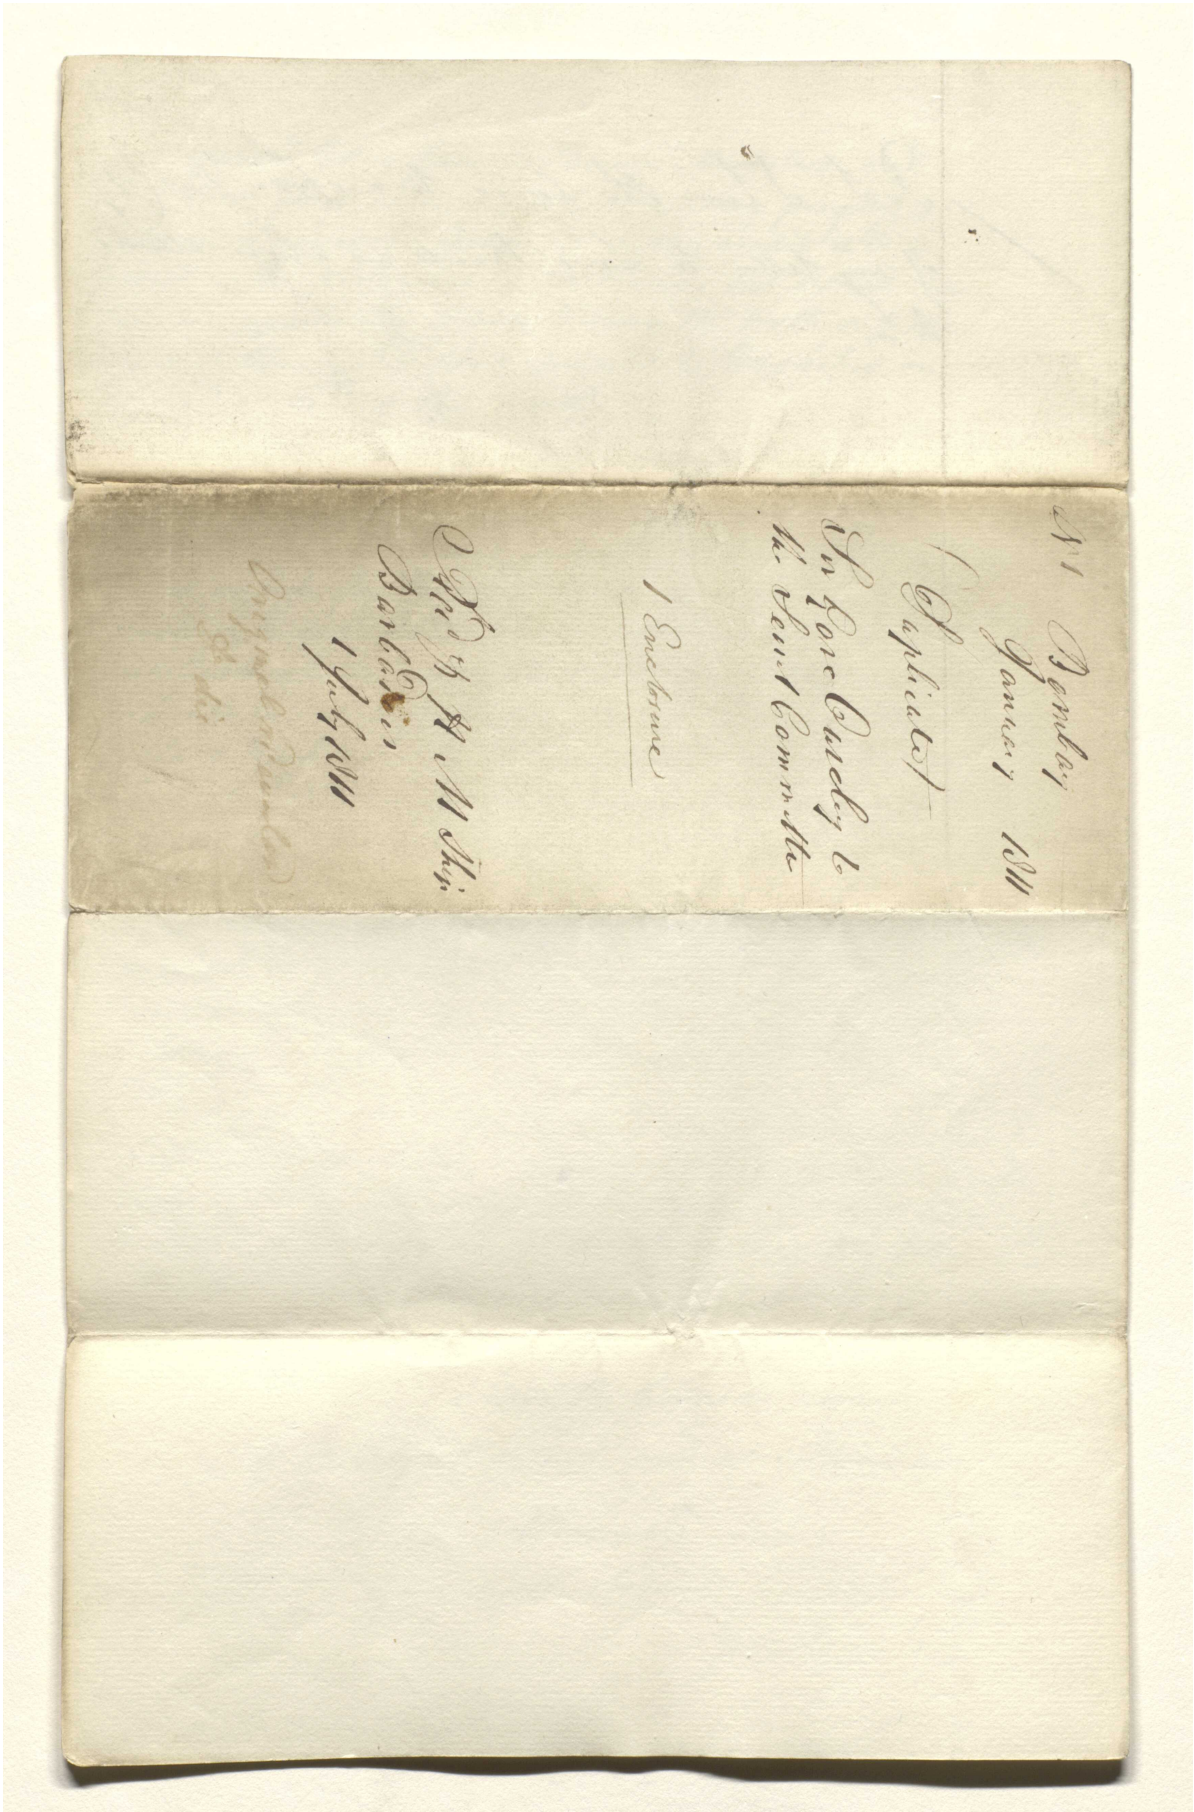 No 1 Bombay
January 1811
(Duplicate)
Sir Gore Ouseley to
the Secret Committee
1 Enclosure
Recd p H M Ship
Barbadoes
1 July 1811
Original recd
die